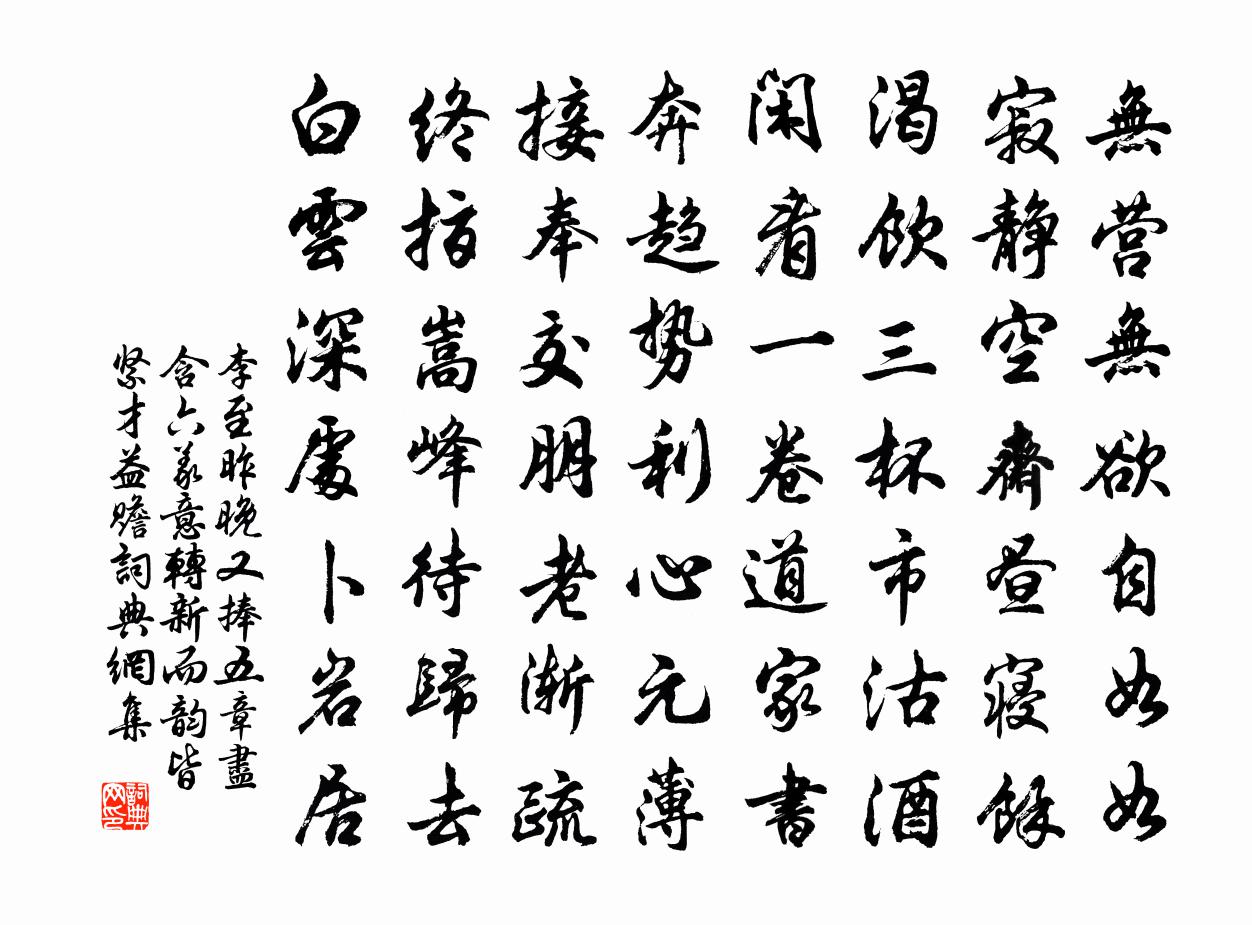 無营無欲自如如
寂静空齋昼寝餘
渴飲三杯市沽酒
閑看一卷道家書
奔趋势利心元薄
接奉交朋老渐疏
终指嵩峰待歸去
白雲深處卜岩居
李至昨晚又捧五章盡
含六义意轉新而韵皆
紧才益赡詞典網集
詞典
网印